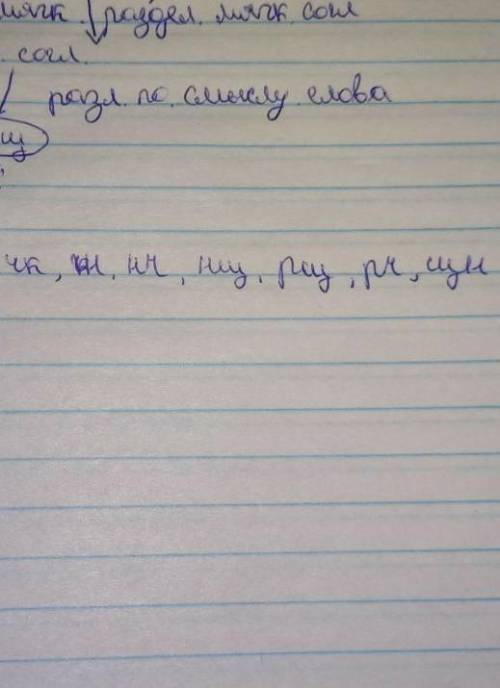 мягк. раздел. мягк. согл
согл.
разл. по. смыслу слова
щ
чк, чн, нч, нщ, рщ, рч, щн